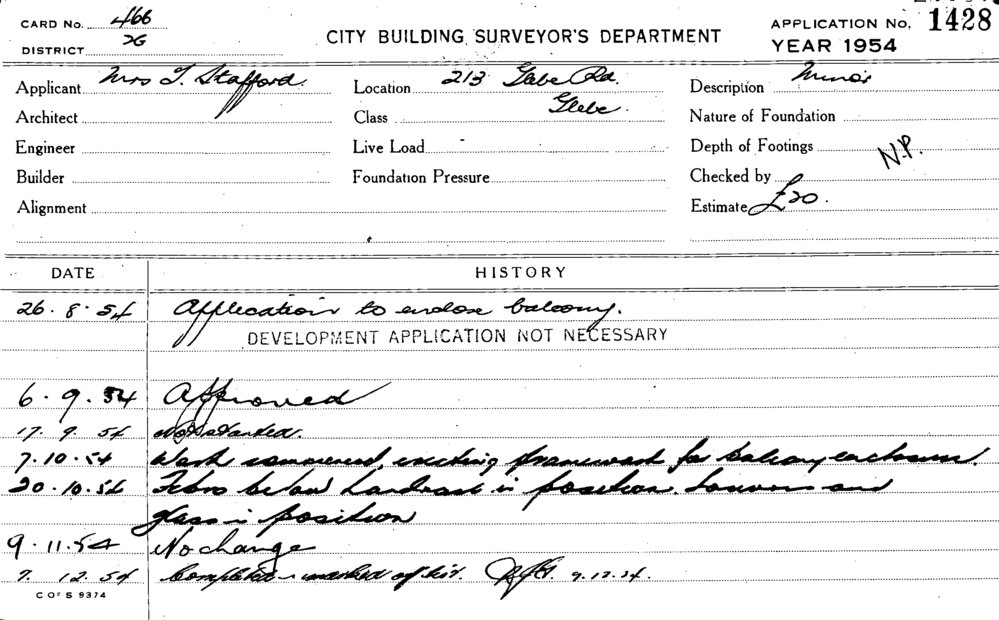 CARD No. 466
DISTRICT 2G
CITY BUILDING SURVEYOR'S DEPARTMENT
APPLICATION No. 1428
YEAR 1954
Applicant Mrs T. Stafford.
Location 213 Glebe Rd.
Glebe.
Description Minor
Architect
Class
Nature of Foundation
Engineer
Live Load -
Depth of Footings
N.P.
Builder
Foundation Pressure
Checked by
Alignment
Estimate £20.
DATE
HISTORY
26.8.54 Application to enclose balcony.
DEVELOPMENT APPLICATION NOT NECESSARY
6.9.54 Approved
17.9.54 Not started.
7.10.54 Work commenced, erecting framework for balcony enclosure.
20.10.54 Fibro below handrail in position. Louvers and
glass in position
9.11.54 No change
7.12.54 Completed - marked off list. 9.12.54.
C OF S 9374